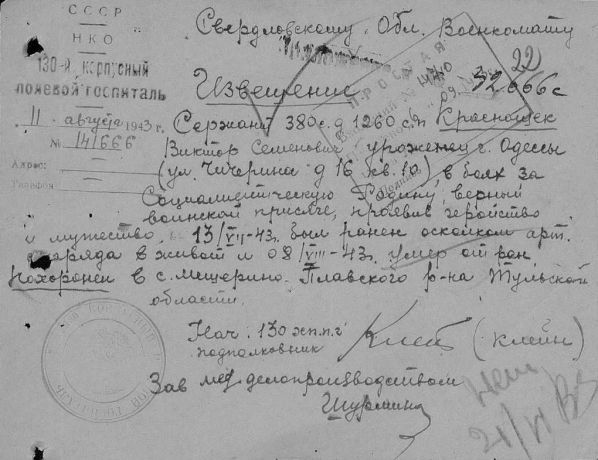 СССР
НКО
130-й корпусный
полевой госпиталь
11 августа 1943 г.
№ 141666
Адрес:
Телефон
Свердловскому Обл. Военкомату
22)
ПРОСТАЯ
Извещение
52666с
Сержант 380 с.д 1260 с.п Краснощек
Виктор Семенович уроженец г. Одессы
(ул. Чичерина д 16 кв. 10) в боях за
Социалистическую Родину, верный
воинской присяге, проявив геройство
и мужество, 13/VII-43г. был ранен осколком арт.
снаряда в живот и 08/VIII-43г. умер от ран,
Похоронен в с. Мещерино Плавского р-на Тульской
области.
Нач. 130 хппг
подполковник
(Клейн)
Зав мед делопроизводством
Шурмина
21/VI